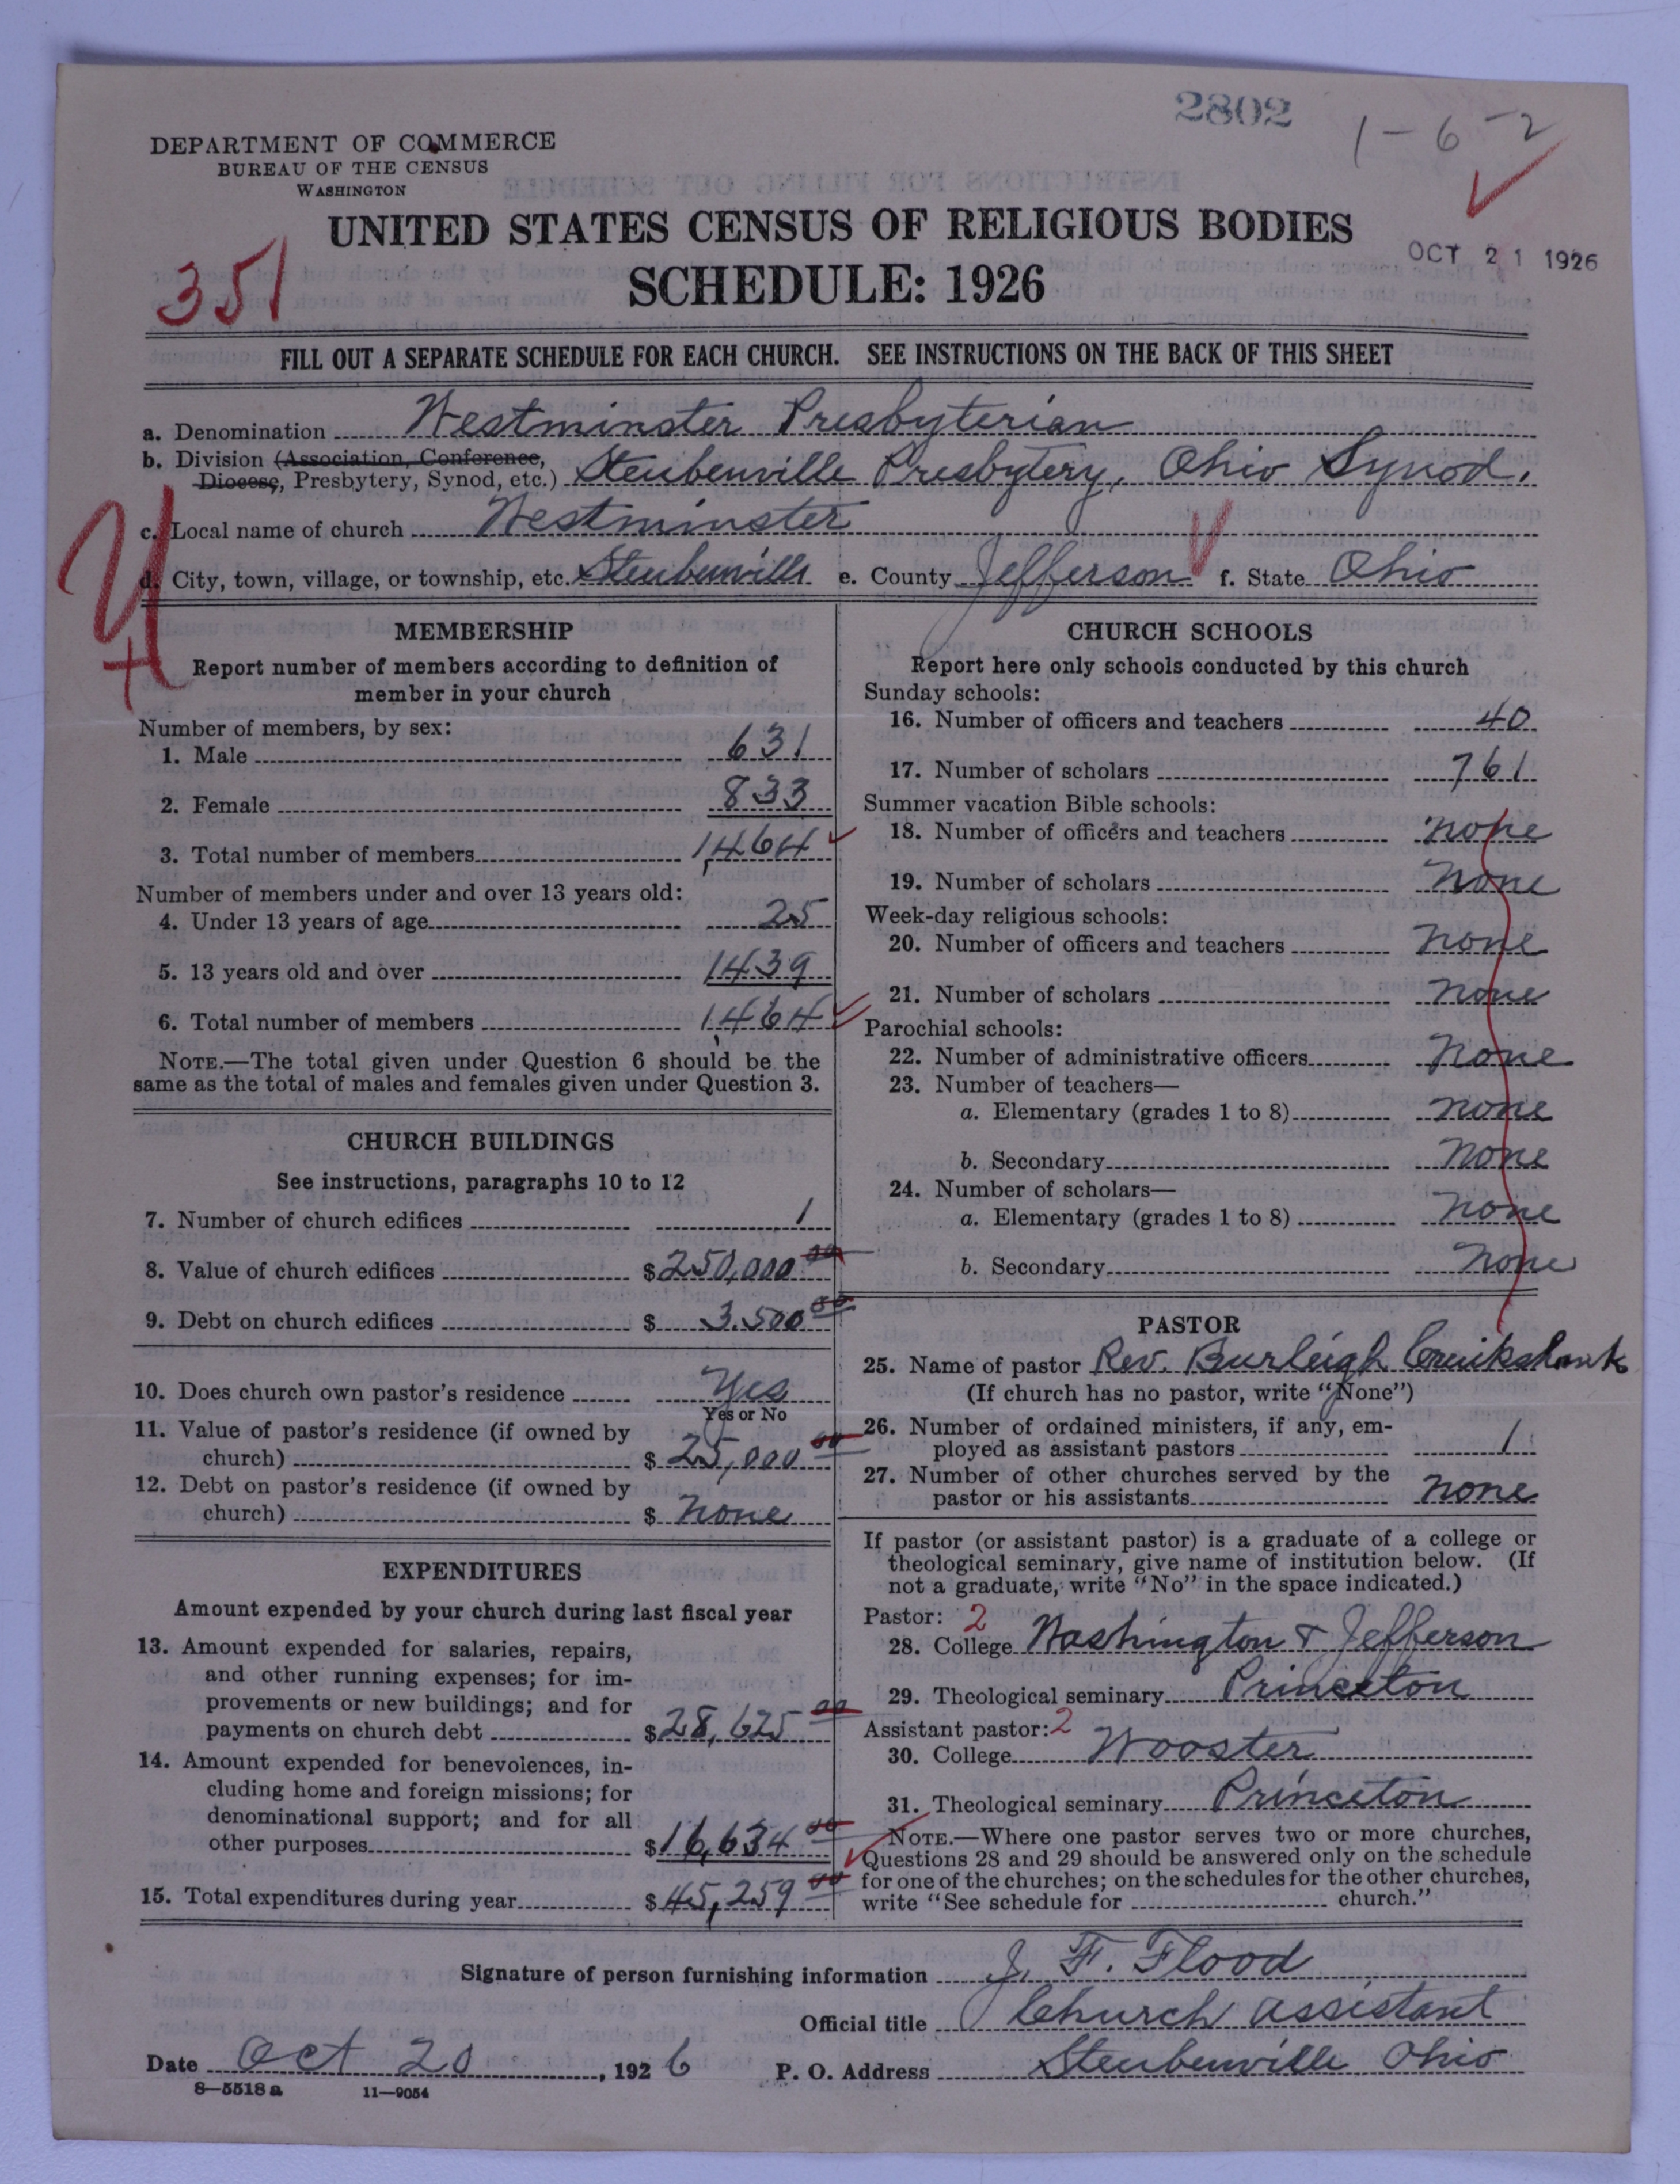 2802
1-6-2
DEPARTMENT OF COMMERCE
BUREAU OF THE CENSUS
WASHINGTON
UNITED STATES CENSUS OF RELIGIOUS BODIES
SCHEDULE: 1926
OCT 21 1926
351
FILL OUT A SEPARATE SCHEDULE FOR EACH CHURCH. SEE INSTRUCTIONS ON THE BACK OF THIS SHEET
a. Denomination Westminster Presbyterian
b. Division (Association, Conference,
Diocese, Presbytery, Synod, etc.) Steubenville Presbytery, Ohio Synod.
c. Local name of church Westminster
d. City, town, village, or township, etc. Steubenville e. County Jefferson f. State Ohio
MEMBERSHIP
Report number of members according to definition of
member in your church
Number of members, by sex:
1. Male 631
2. Female 833
3. Total number of members 1,464
Number of members under and over 13 years old:
4. Under 13 years of age 25
5. 13 years old and over 1439
6. Total number of members 1,464
NOTE.—The total given under Question 6 should be the
same as the total of males and females given under Question 3.
CHURCH BUILDINGS
See instructions, paragraphs 10 to 12
7. Number of church edifices 1
8. Value of church edifices $250,000 00
9. Debt on church edifices $ 3.500 00
10. Does church own pastor's residence Yes
Yes or No
11. Value of pastor's residence (if owned by
church) $ 25,000 00
12. Debt on pastor's residence (if owned by
church) $ None
EXPENDITURES
Amount expended by your church during last fiscal year
13. Amount expended for salaries, repairs,
and other running expenses; for im-
provements or new buildings; and for
payments on church debt $28,625 00
14. Amount expended for benevolences, in-
cluding home and foreign missions; for
denominational support; and for all
other purposes $16,634 00
15. Total expenditures during year $45,259 00
CHURCH SCHOOLS
Report here only schools conducted by this church
Sunday schools:
16. Number of officers and teachers 40
17. Number of scholars 761
Summer vacation Bible schools:
18. Number of officers and teachers none
19. Number of scholars None
Week-day religious schools:
20. Number of officers and teachers None
21. Number of scholars None
Parochial schools:
22. Number of administrative officers None
23. Number of teachers—
a. Elementary (grades 1 to 8) none
b. Secondary None
24. Number of scholars—
a. Elementary (grades 1 to 8) None
b. Secondary None
PASTOR
25. Name of pastor Rev. Burleigh Cruikshank
(If church has no pastor, write "None")
26. Number of ordained ministers, if any, em-
ployed as assistant pastors 1
27. Number of other churches served by the
pastor or his assistants None
If pastor (or assistant pastor) is a graduate of a college or
theological seminary, give name of institution below. (If
not a graduate, write "No" in the space indicated.)
Pastor: 2
28. College Washington & Jefferson
29. Theological seminary Princeton
Assistant pastor: 2
30. College Wooster
31. Theological seminary Princeton
NOTE.—Where one pastor serves two or more churches,
Questions 28 and 29 should be answered only on the schedule
for one of the churches; on the schedules for the other churches,
write "See schedule for church."
Signature of person furnishing information J. F. Flood
Official title Church Assistant
Date Oct 20, 1926 P. O. Address Steubenville Ohio
8—5518 a 11—9054